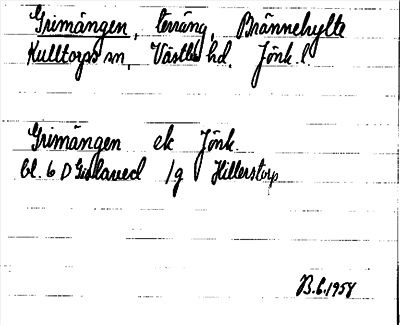 Grimängen, terräng, Brännehylte
Kulltorps sn, Västbo hd, Jönk. l.
Grimängen ek Jönk.
bl. 6 D Gislaved 1g Hillerstorp
B.C. 1958